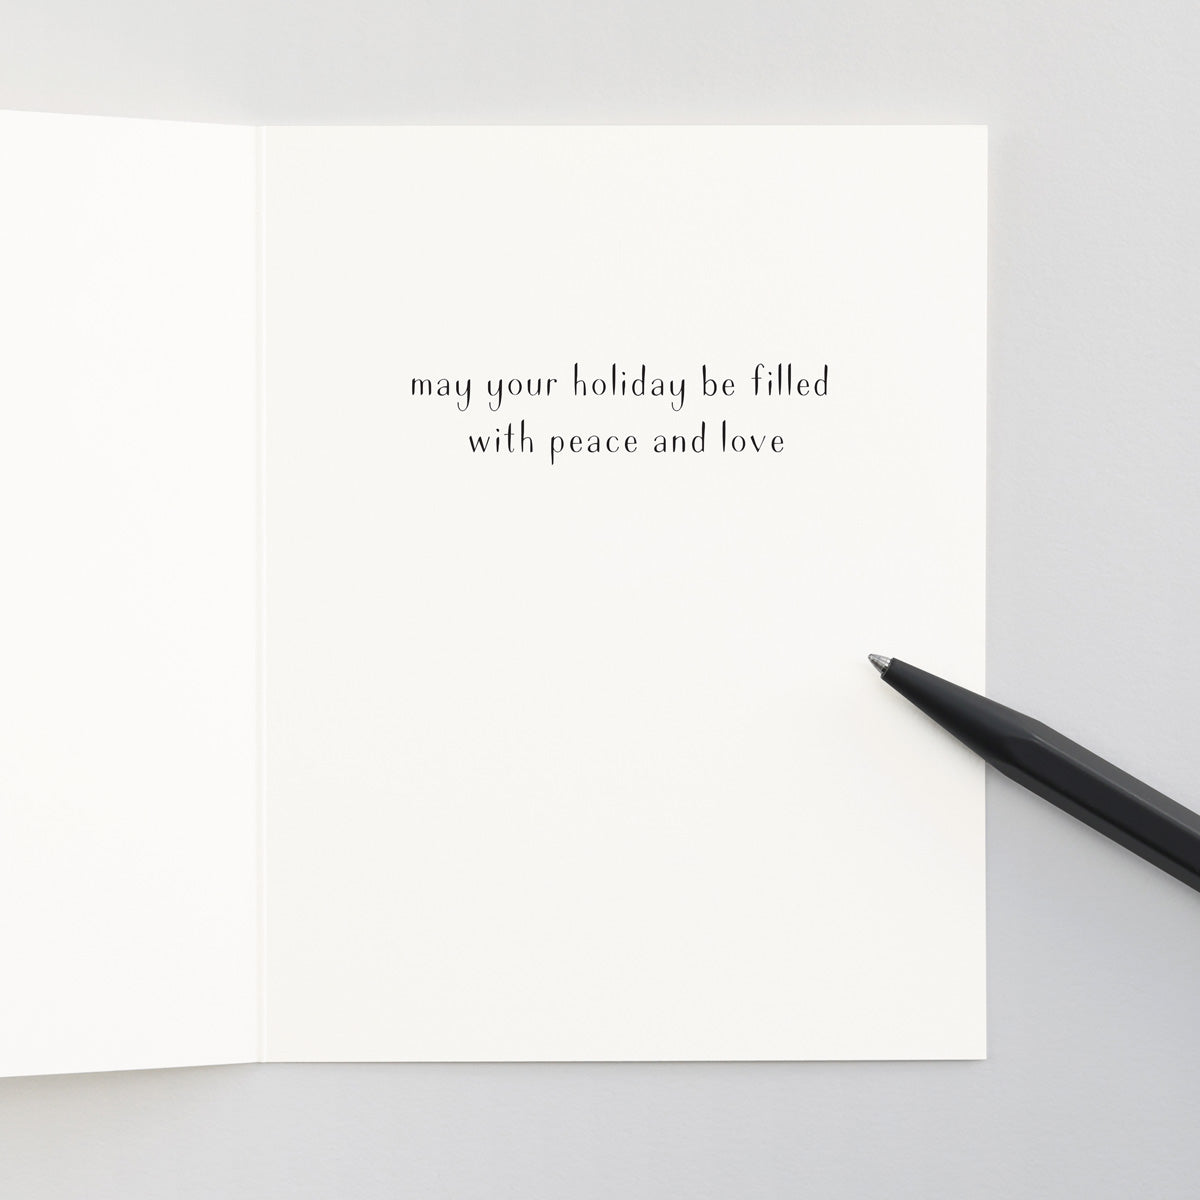 may your holiday be filled
with peace and love